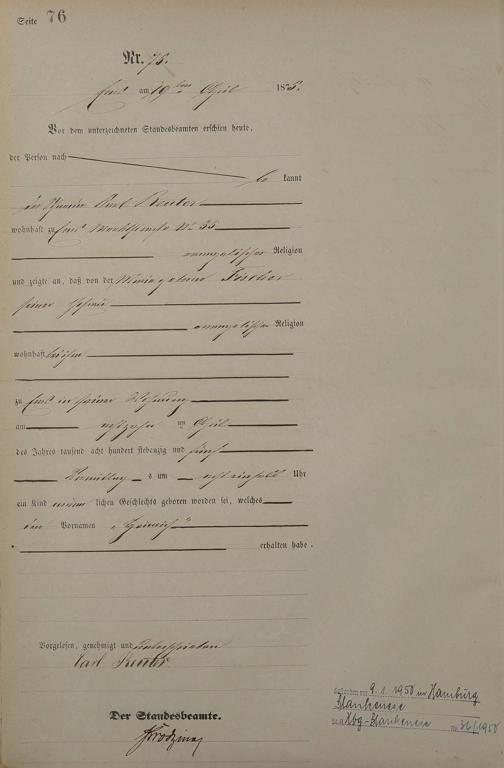 Seite 76
Nr. 75.
Ems am 19ten April 1875.
Vor dem unterzeichneten Standesbeamten erschien heute,
der Person nach
be kannt
Karl Reuter
wohnhaft zu Ems No 35
evangelischer Religion
und zeigte an, daß von der geborene Fischer
seiner
evangelischer Religion
wohnhaft bei ihm
zu Ems in seiner Wohnung
am achtzehn ten April
des Jahres tausend acht hundert siebenzig und fünf
mittags um acht einhalb Uhr
ein Kind männ lichen Geschlechts geboren worden sei, welches
den Vornamen „Heinrich"
erhalten habe.
Vorgelesen, genehmigt und unterschrieben
Carl Reuter
Der Standesbeamte.
Gestorben am 9.1.1950 in Hamburg
Blankenese
Hbg-Blankenese Nr. 36/1950